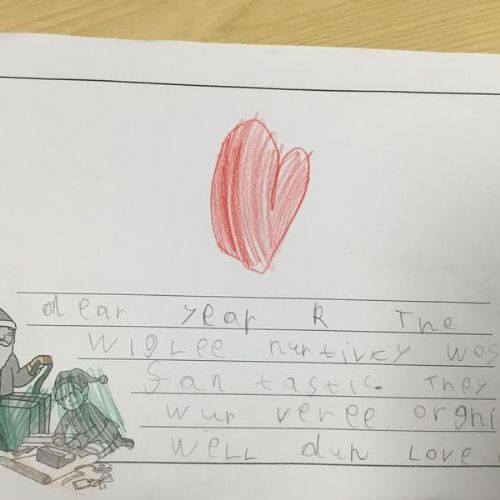 dear year R The
wiglee nurtivity wos
fantastic. They
wur veree orgni
well dun Love